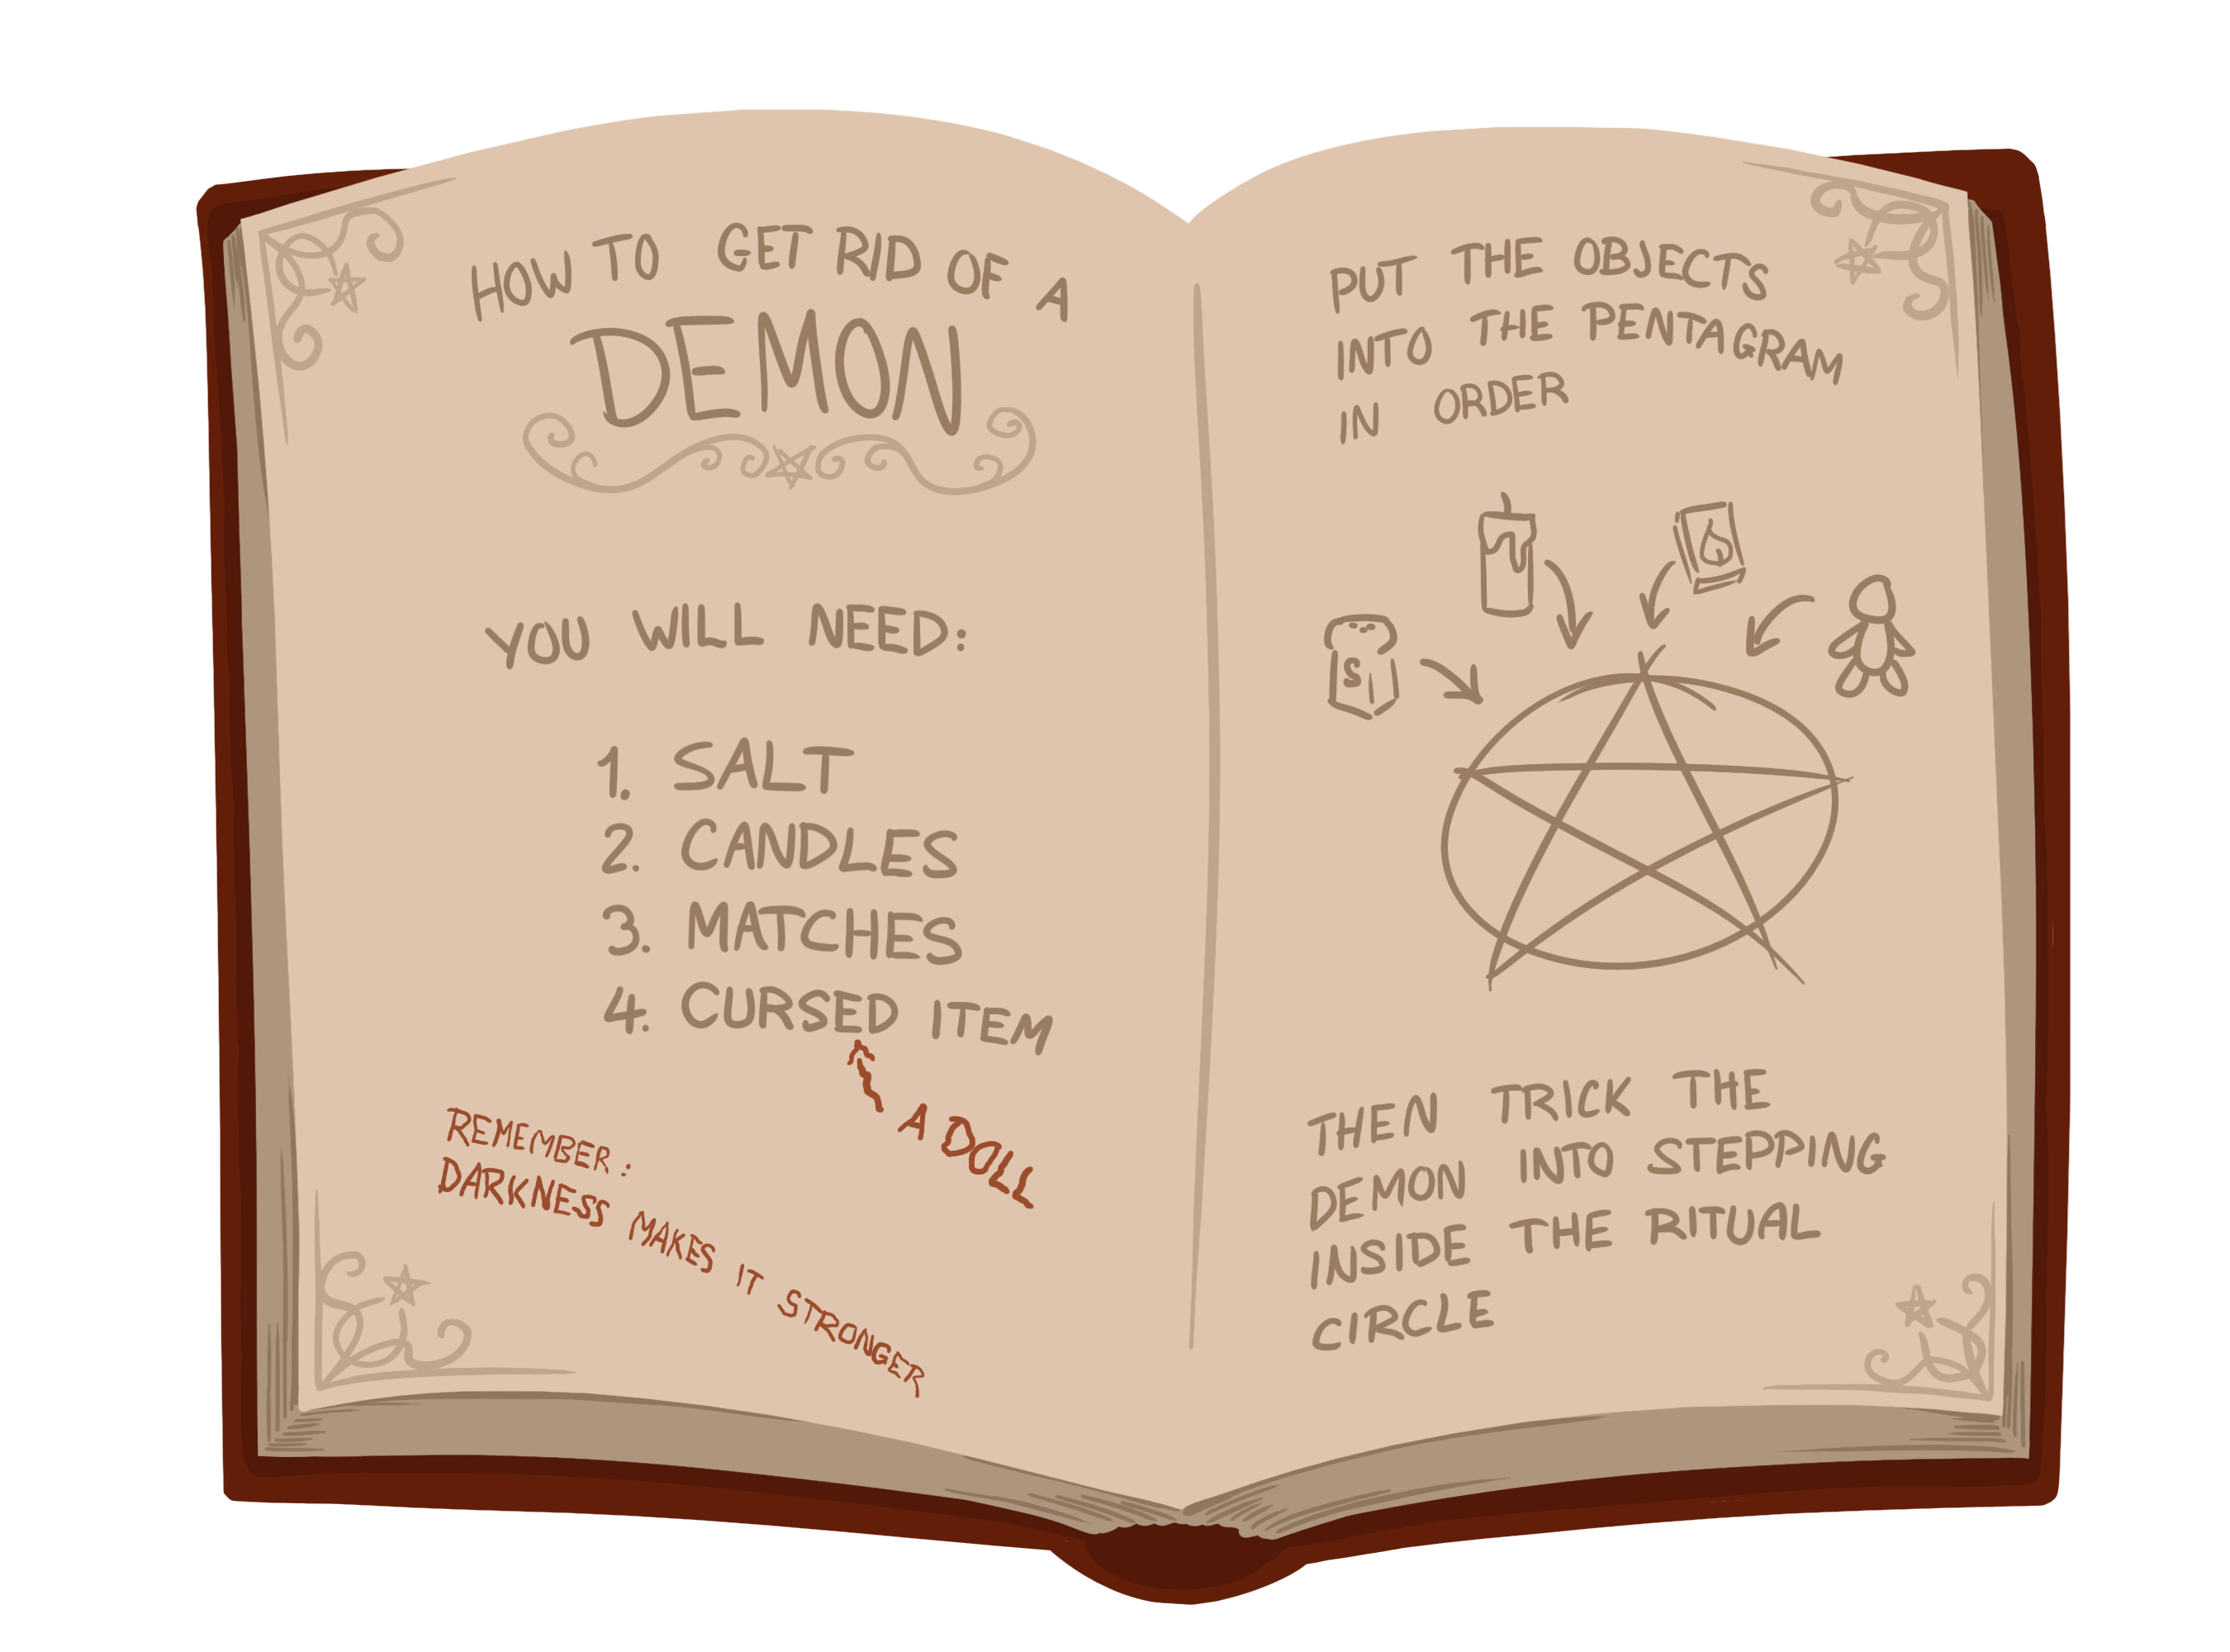 HOW TO GET RID OF A
DEMON
YOU WILL NEED:
1. SALT
2. CANDLES
3. MATCHES
4. CURSED ITEM
A DOLL
REMEMBER:
DARKNESS MAKES IT STRONGER
PUT THE OBJECTS
INTO THE PENTAGRAM
IN ORDER
THEN TRICK THE
DEMON INTO STEPPING
INSIDE THE RITUAL
CIRCLE